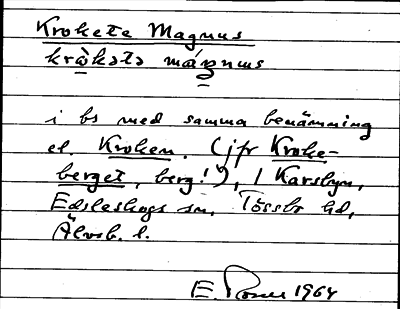 Krokete Magnus
kròkətə mágnus
i bs med samma benämning
el. Kroken. (jfr Kroke-
berget, berg!), i Karsbyn,
Edsleskogs sn, Tössbo hd,
Älvsb. l.
E. Rosell 1964